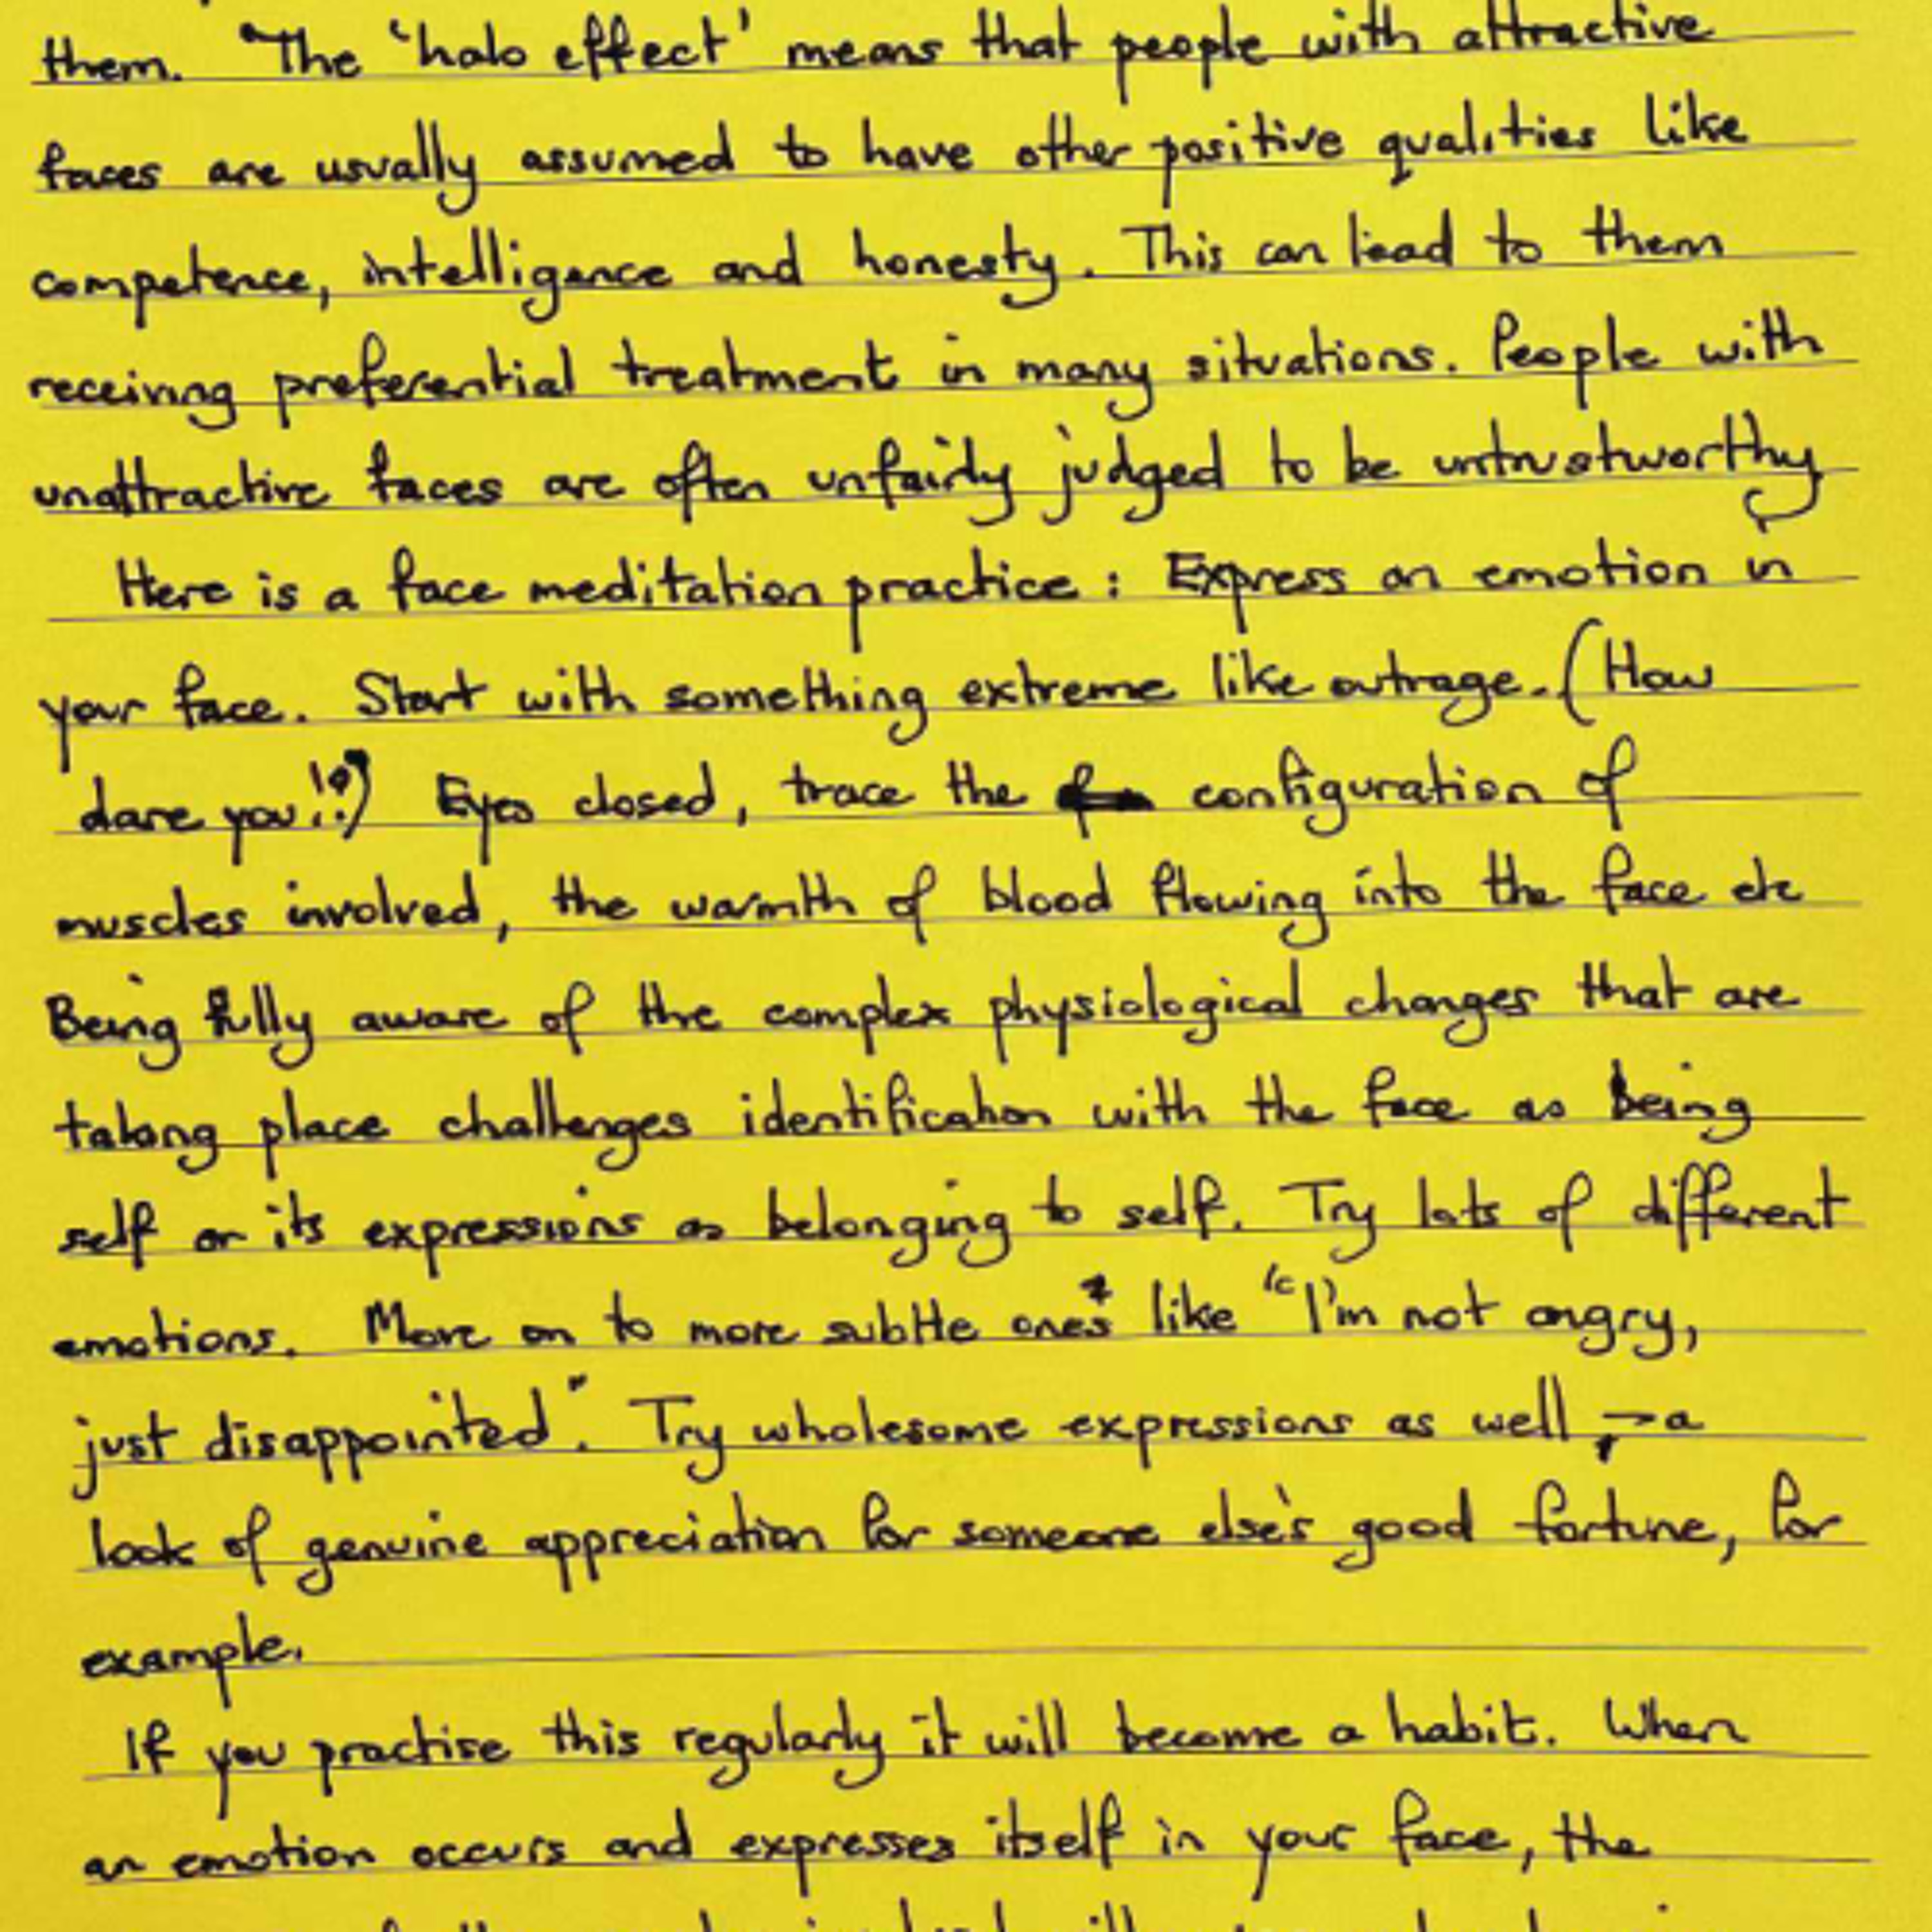 them. The 'halo effect' means that people with attractive
faces are usually assumed to have other positive qualities like
competence, intelligence and honesty. This can lead to them
receiving preferential treatment in many situations. People with
unattractive faces are often unfairly judged to be untrustworthy
Here is a face meditation practice: Express an emotion in
your face. Start with something extreme like outrage. (How
dare you!?) Eyes closed, trace the configuration of
muscles involved, the warmth of blood flowing into the face etc
Being fully aware of the complex physiological changes that are
taking place challenges identification with the face as being
self or its expressions as belonging to self. Try lots of different
emotions. Move on to more subtle ones like "I'm not angry,
just disappointed". Try wholesome expressions as well – a
look of genuine appreciation for someone else's good fortune, for
example.
If you practise this regularly it will become a habit. When
an emotion occurs and expresses itself in your face, the